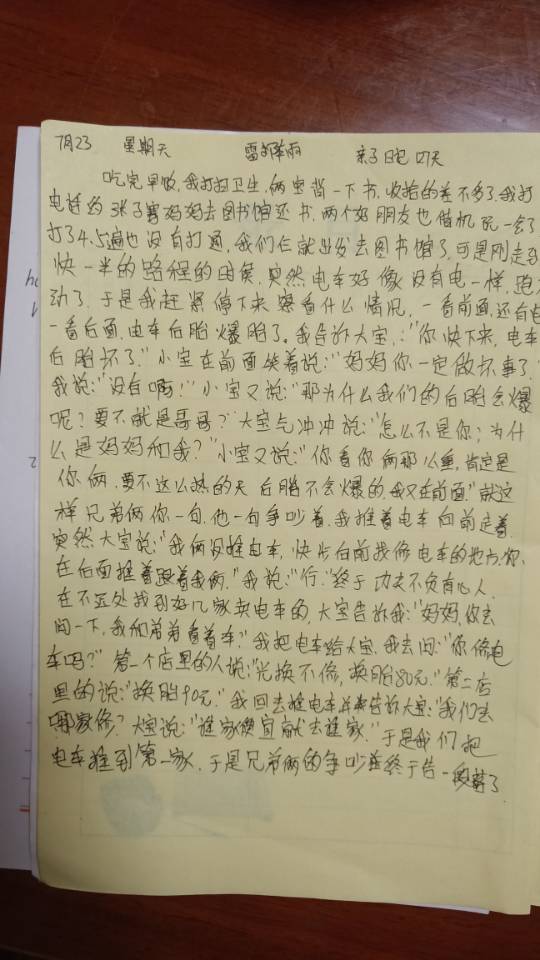 7月23 星期天 雷阵雨 亲子日记 四天
吃完早饭,我打扫卫生,俩宝背一下书,收拾的差不多了,我打
电话约张子赛妈妈去图书馆还书,两个好朋友也借机玩一会了
打了4.5遍也没有打通,我们仨就出发去图书馆了,可是刚走到
快一半的路程的时候,突然电车好像没有电一样,跑
动了,于是我赶紧停下来察看什么情况,一看前面,还有电
一看后面,电车后胎爆胎了。我告诉大宝,:“你快下来,电车
后胎坏了.”小宝在前面笑着说:“妈妈你一定做坏事了,
我说:“没有啊!”小宝又说:“那为什么我们的后胎会爆
呢?要不就是哥哥?”大宝气冲冲说:“怎么不是你;为什
么是妈妈和我?”小宝又说:“你看你俩那么重,肯定是
你俩.要不这么热的天后胎不会爆的,我又在前面”就这
样兄弟俩你一句,他一句争吵着,我推着电车向前走着,
突然大宝说:“我俩没推电车,快步向前找修电车的地方,你
在后面推着跟着我俩.”我说:“行.”终于功夫不负有心人,
在不远处找到好几家卖电车的,大宝告诉我:“妈妈,你去
问一下,我和弟弟看着车?”我把电车给大宝,我去问:“你修电
车吗?”第一个店里的人说:“光换不修,换胎80元.”第二店
里的说:“换胎90元.”我回去推电车并告诉大宝:“我们去
哪家修?大宝说:“谁家便宜就去谁家.”于是我们把
电车推到第一家,于是兄弟俩的争吵终于告一段落了